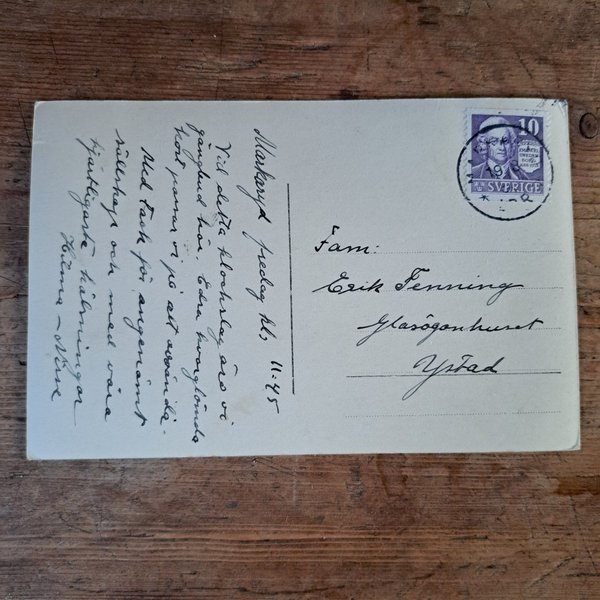 Markaryd fredag kl. 11.45
Vid detta klockslag äro vi
här. Edra
kort passa vi på att använda.
Med tack för angenämt
sällskap och med våra
hjärtligaste hälsningar
Hilma – Nina
10
SVERIGE
Fam:
Erik Fenning
Glasögonhuset
Ystad